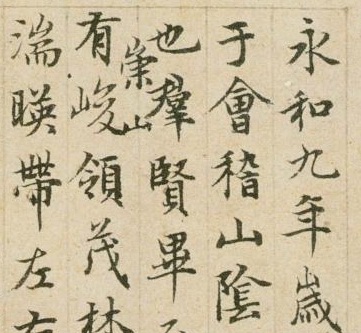 永和九年歲
于會稽山陰
也羣賢畢
有崇山峻領茂林
湍暎帶左右